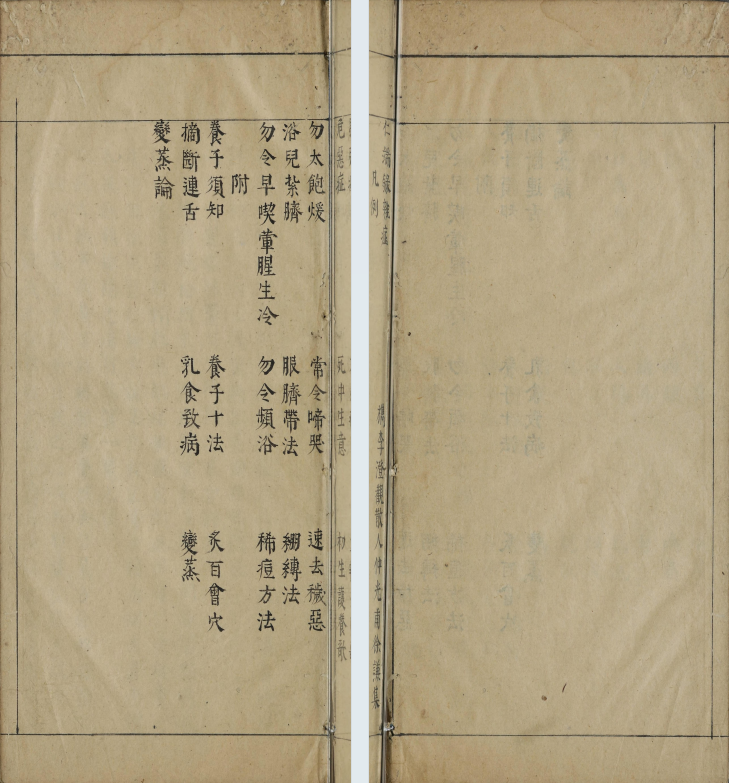 仁端錄雜症
檇李澄觀散人仲光甫徐謙集
凡例
危惡症 死中生意 初生護養歌
勿太飽煖 常令啼哭 速去穢惡
浴兒紮臍 服臍帶法 繃縛法
勿令早喫葷腥生冷 勿令頻浴 稀痘方法
附
養子須知 養子十法 炙百會穴
摘斷連舌 乳食致病 變蒸
變蒸論